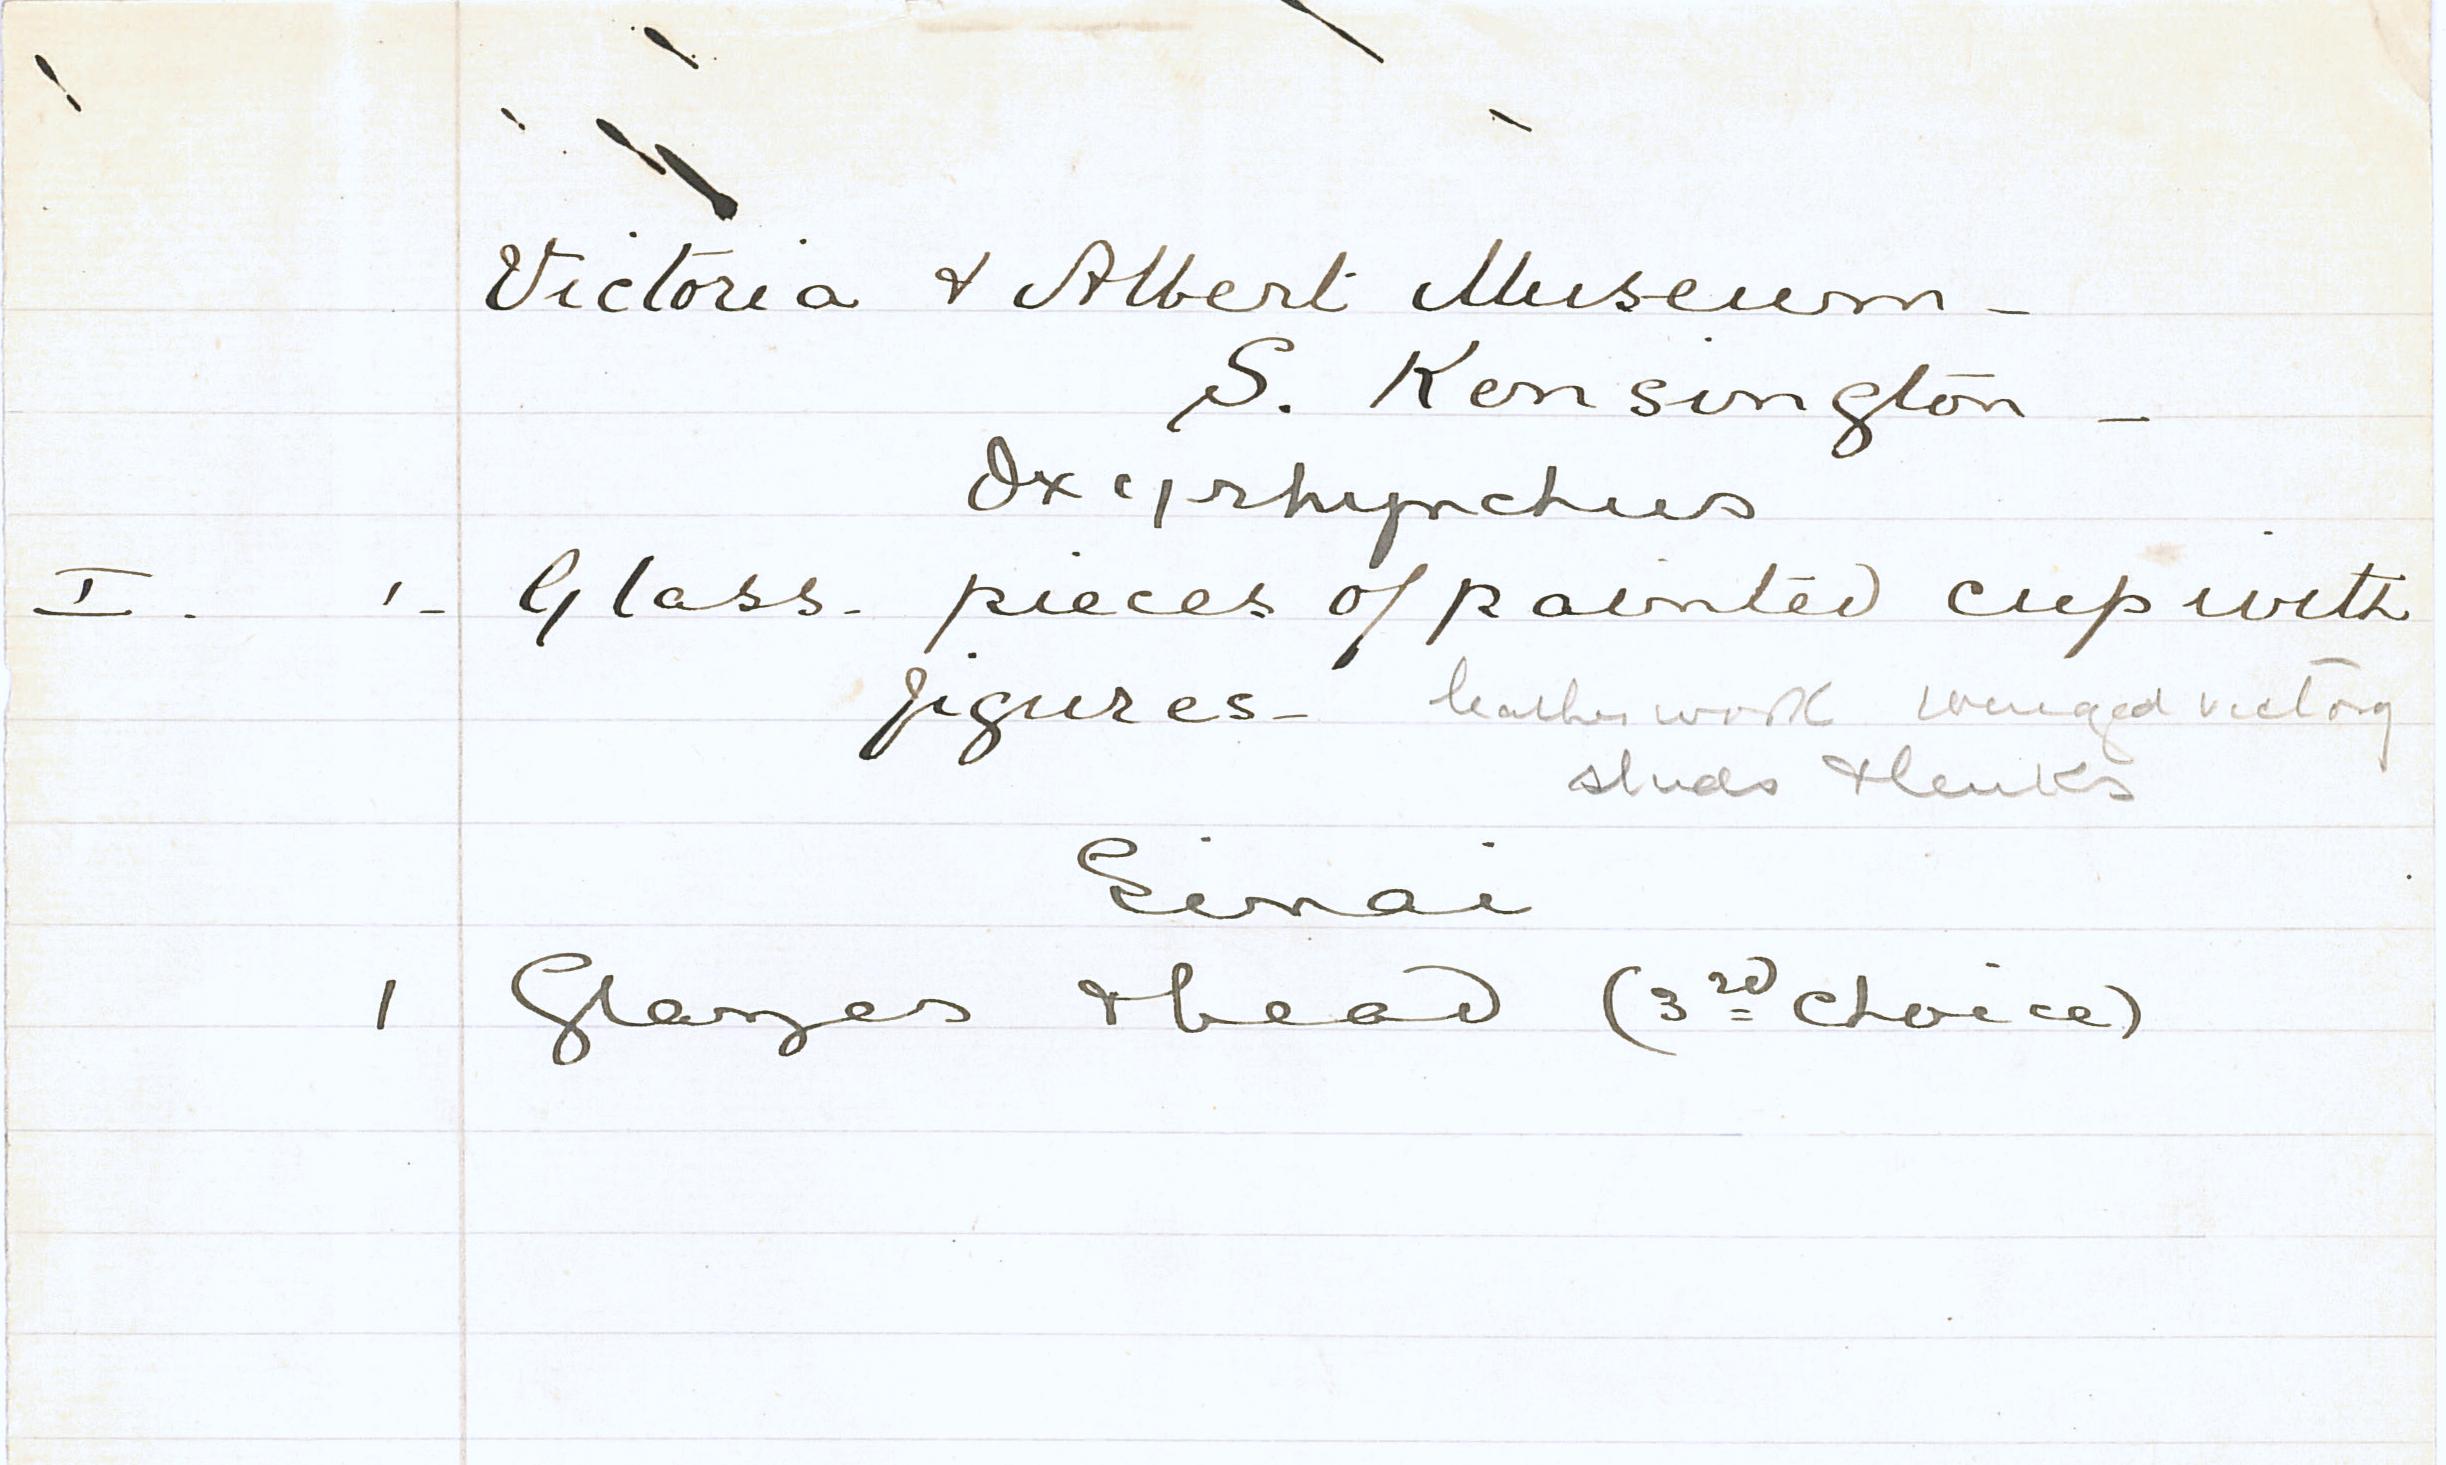 Victoria & Albert Museum -
S. Kensington -
Oxyrhynchus
I. 1- Glass- pieces of painted cup with
figures- leather work winged victory
studs & links
Sinai
1 Glazes & bead (3rd choice)